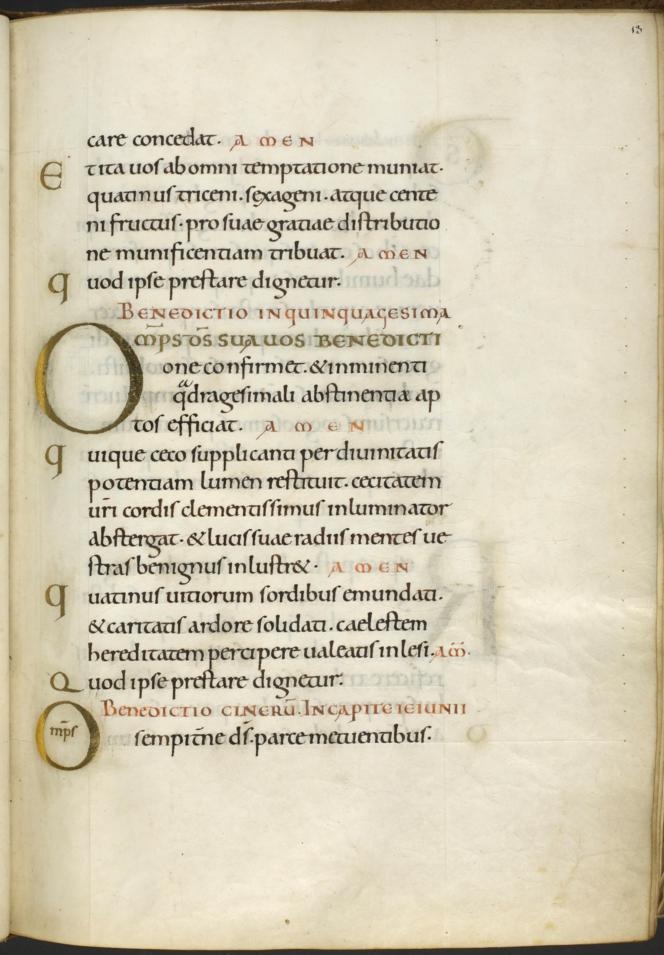 13
care concedat. AMEN
Et ita uos ab omni temptatione muniat.
quatinus triceni. sexageni. atque cente
ni fructus. pro suae gratiae distributio
ne munificentiam tribuat. AMEN
quod ipse prestare dignetur.
BENEDICTIO IN QUINQUAGESIMA
Om̅ps d̅s sua uos BENEDICTI
one confirmet. & inminenti
qͣdragesimali abstinentiæ ap
tos efficiat. AMEN
quique ceco supplicanti per diuinitatis
potentiam lumen restituit. cecitatem
ur̅i cordis clementissimus inluminator
abstergat. & lucis suae radiis mentes ue
stras benignus inlustr&. AMEN
quatinus uitiorum sordibus emundati.
& caritatis ardore solidati. caelestem
hereditatem percipere ualeatis inlesi. AM̅.
Quod ipse prestare dignetur.
BENEDICTIO CINERU̅. IN CAPITE IEIUNII
Om̅ps sempit̅ne d̅s. parce metuentibus.